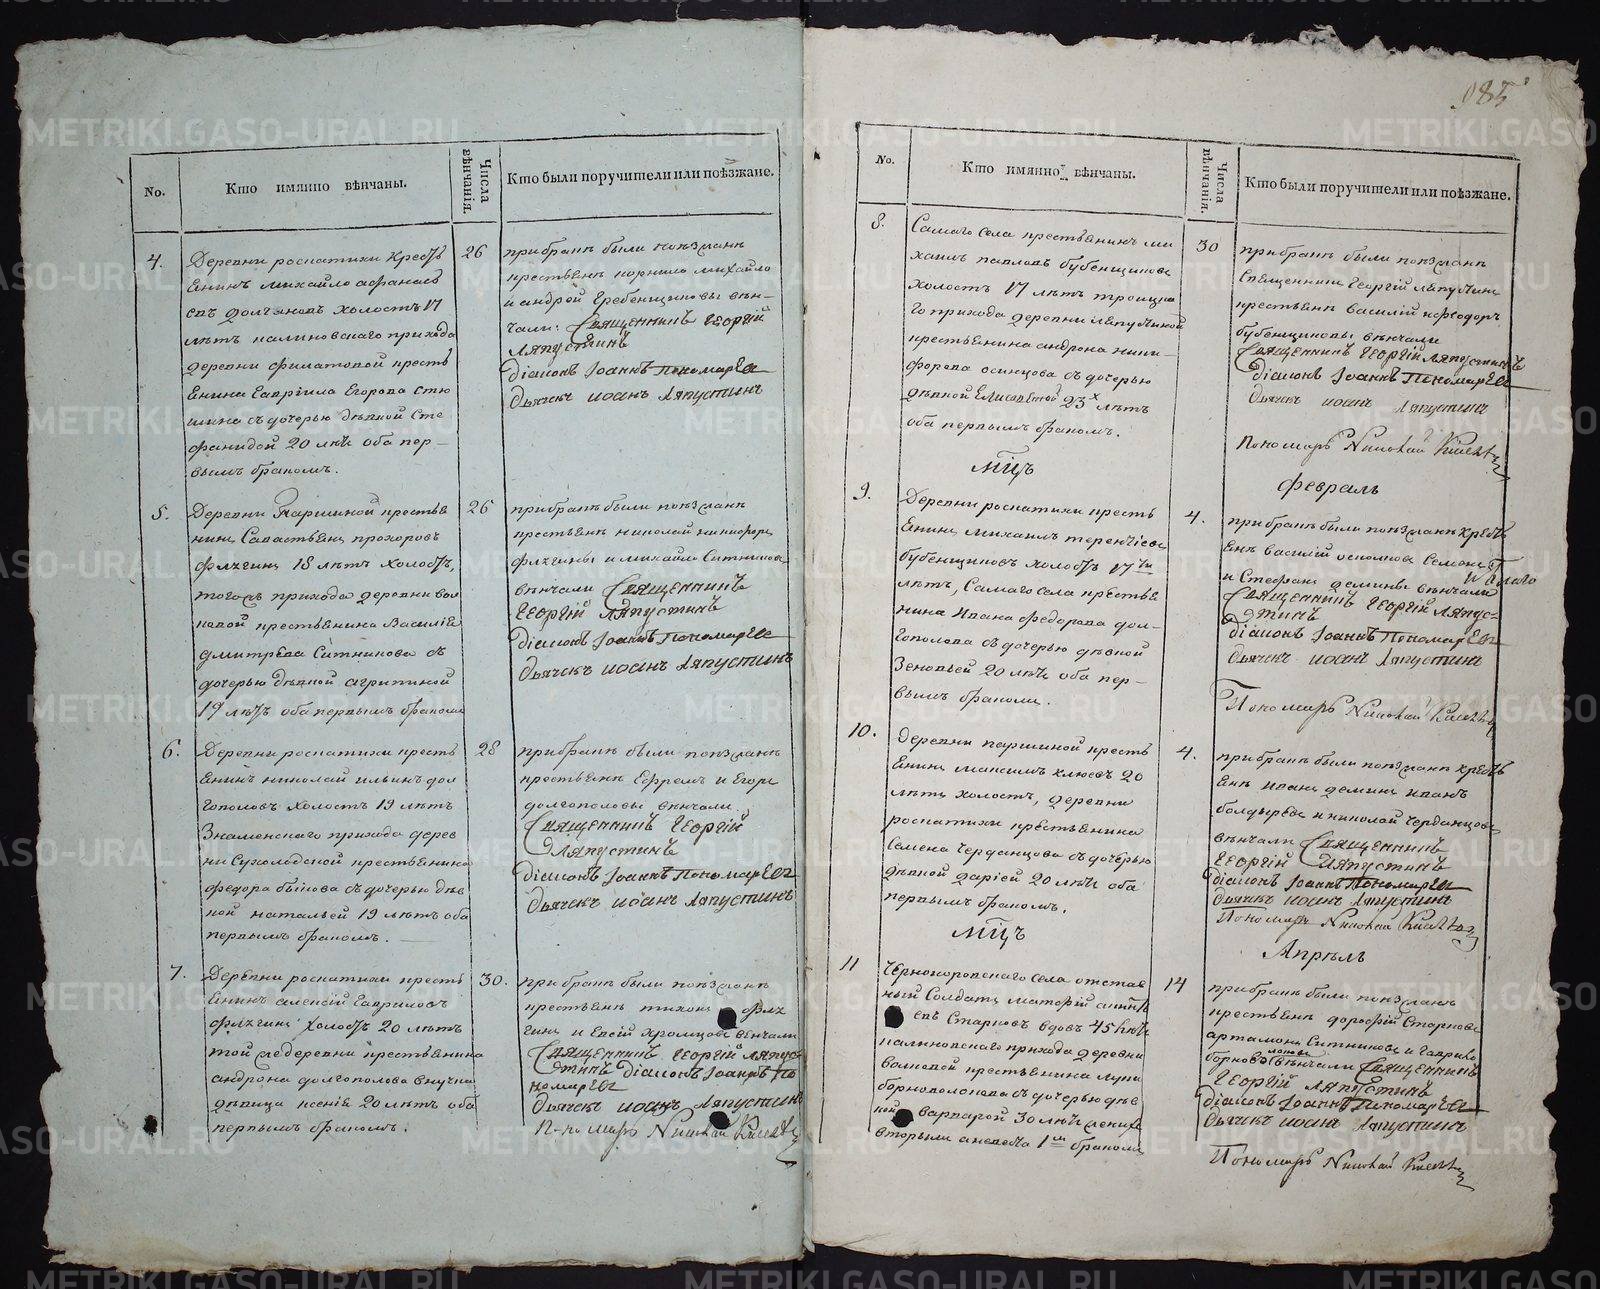 085
No.
Кто имянно вѣнчаны.
Числа вѣнчанія.
Кто были поручители или поѣзжане.
4.
Деревни роспатихи кресть
янинъ михайло афанась
евъ долгановъ холостъ 17
лѣтъ калиновскаго прихода
деревни филатовой кресть
янина Гавріила Егорова
шина съ дочерью дѣвкой Сте
фанидой 20 лѣтъ оба пер-
вымъ бракомъ.
26
при бракѣ были поѣзжанѣ
крестьянѣ корнило михайло
и андрей Гребенщиковы вѣн-
чали: Священникъ Георгій
Ляпустинъ
Діаконъ Іоаннъ Пономаревъ
Дьячекъ иоанъ Ляпустинъ
5.
Деревни Паршиной крестья
нинъ Савастьянъ прохоровъ
18 лѣтъ холостъ,
тогожъ прихода деревни вол
ковой крестьянина Василія
дмитрева Ситникова съ
дочерью дѣвкой агрипиной
19 лѣтъ оба первымъ бракомъ
26
при бракѣ были поѣзжанѣ
крестьянѣ николай никифоръ
и михайло Ситниковъ
вѣнчали Священникъ
Георгій Ляпустинъ
Діаконъ Іоаннъ Пономаревъ
Дьячекъ иоанъ Ляпустинъ
6.
Деревни роспатихи кресть
янинъ николай ильинъ дол
гополовъ холостъ 19 лѣтъ
Знаменскаго прихода дерев
ни Сухолодской крестьянина
федора быкова съ дочерью дѣв
кой натальей 19 лѣтъ оба
первымъ бракомъ.
28
при бракѣ были поѣзжанѣ
крестьянѣ Ефремъ и Егоръ
долгополовы вѣнчали.
Священникъ Георгій
Ляпустинъ
Діаконъ Іоаннъ Пономаревъ
Дьячекъ иоанъ Ляпустинъ
7.
Деревни роспатихи кресть
янинъ алексѣй Гавриловъ
холостъ 20 лѣтъ
той же деревни крестьянина
андрона долгополова внучка
дѣвица ксенія 20 лѣтъ оба
первымъ бракомъ.
30.
при бракѣ были поѣзжанѣ
крестьянѣ тихонъ
и Евсѣй хромцовъ вѣнчали
Священникъ Георгій Ляпус-
тинъ Діаконъ Іоаннъ По
номаревъ
Дьячекъ иоанъ Ляпустинъ
Пономарь Николай
No.
Кто имянно вѣнчаны.
Числа вѣнчанія.
Кто были поручители или поѣзжане.
8.
Самаго Села крестьянинъ ми
хаилъ павловъ бубенщиковъ
холостъ 17 лѣтъ троицка
го прихода деревни Ляпуткиной
крестьянина андрона ники-
форова осинцова съ дочерью
дѣвкой Елисаветой 23х лѣтъ
оба первымъ бракомъ.
30
при бракѣ были поѣзжанѣ
Священникъ Георгій Ляпустинъ
крестьянѣ василій и феодоръ
бубенщиковы вѣнчали
Священникъ Георгій Ляпустинъ
Діаконъ Іоаннъ Пономаревъ
Дьячекъ иоанъ Ляпустинъ
Пономарь Николай
мцъ
февраль
9.
Деревни роспатихи кресть
янинъ михаилъ терентіевъ
бубенщиковъ холостъ 17ти
лѣтъ, Самаго села крестья
нина Ивана федорова дол-
гополова съ дочерью дѣвкой
Зеновьей 20 лѣтъ оба пер-
вымъ бракомъ.
4.
при бракѣ были поѣзжанѣ кресть
янѣ василій Семенъ
и Стефанъ демины вѣнчали
Священникъ Георгій Ляпус-
тинъ
Діаконъ Іоаннъ Пономаревъ
Дьячекъ иоанъ Ляпустинъ
Пономарь Николай
10.
деревни паршиной кресть
янинъ максимъ клюевъ 20
лѣтъ холостъ, деревни
роспатихи крестьянина
Семена Черданцова съ дочерью
дѣвкой даріей 20 лѣтъ оба
первымъ бракомъ.
4.
при бракѣ были поѣзжанѣ кресть
янѣ иванъ деминъ иванъ
болдыревъ и николай Черданцовъ
вѣнчали Священникъ
Георгій Ляпустинъ
Діаконъ Іоаннъ Пономаревъ
Дьячекъ иоанъ Ляпустинъ
Пономарь Николай
мцъ
Апрѣль
11
Чернокоровскаго села отстав
ный Солдатъ
Старковъ вдовъ 45 лѣтъ
калиновскаго прихода деревни
волковой крестьянина луки
борноволокова съ дочерью дѣв
кой варварой 30 лѣтъ женихъ
вторымъ а невеста 1м бракомъ
14
при бракѣ были поѣзжанѣ
крестьянѣ дорофѣй Старковъ
артамонъ Ситниковъ и Гаврило
борново
локовъ вѣнчали Священникъ
Георгій Ляпустинъ
Діаконъ Іоаннъ Пономаревъ
Дьячекъ иоанъ Ляпустинъ
Пономарь Николай
METRIKI.GASO-URAL.RU